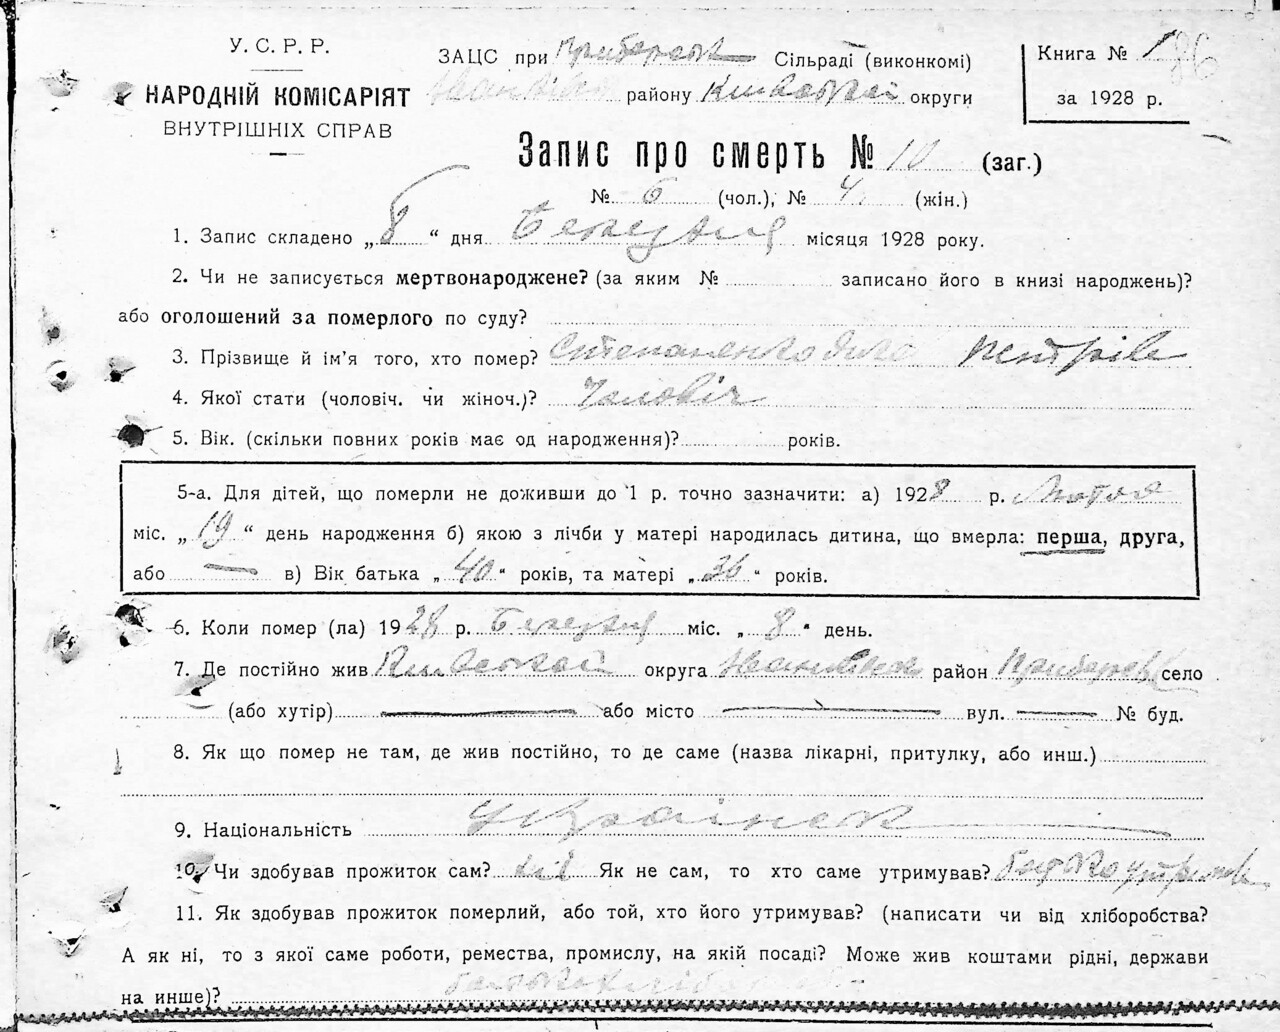 У. С. Р. Р.
НАРОДНІЙ КОМІСАРІЯТ
ВНУТРІШНІХ СПРАВ
ЗАЦС при Сільраді (виконкомі)
району Київської округи
Книга № 1 86
за 1928 р.
Запис про смерть № 10 (заг.)
№ 6 (чол.), № 4 (жін.)
1. Запис складено „8“ дня Березня місяця 1928 року.
2. Чи не записується мертвонароджене? (за яким № записано його в книзі народжень)?
або оголошений за померлого по суду?
3. Прізвище й ім’я того, хто помер? Степаненко Петрів
4. Якої стати (чоловіч. чи жіноч.)? Чоловіч
5. Вік. (скільки повних років має од народження)? років.
5-а. Для дітей, що померли не доживши до 1 р. точно зазначити: а) 1928 р. Лютня
міс. „19“ день народження б) якою з лічби у матері народилась дитина, що вмерла: перша, друга,
або — в) Вік батька „40“ років, та матері „36“ років.
6. Коли помер (ла) 1928 р. Березня міс. „8“ день.
7. Де постійно жив Київської округа район село
(або хутір) — або місто — вул. — № буд.
8. Як що помер не там, де жив постійно, то де саме (назва лікарні, притулку, або инш.)
9. Національність Українец
10. Чи здобував прожиток сам? ні Як не сам, то хто саме утримував?
11. Як здобував прожиток померлий, або той, хто його утримував? (написати чи від хліборобства?
А як ні, то з якої саме роботи, ремества, промислу, на якій посаді? Може жив коштами рідні, держави
на инше)?